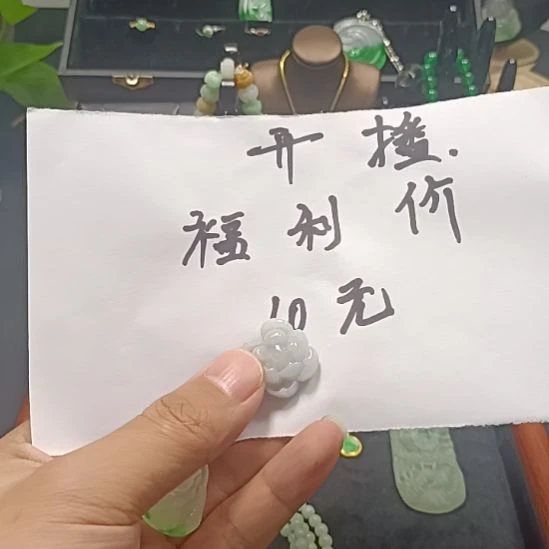 开播.
福利价
10元